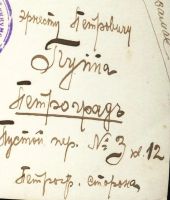 Эрнесту Петровичу
Пуття
Петроградъ
Пустой пер. № 3 кв. 12
Петрогр. сторона